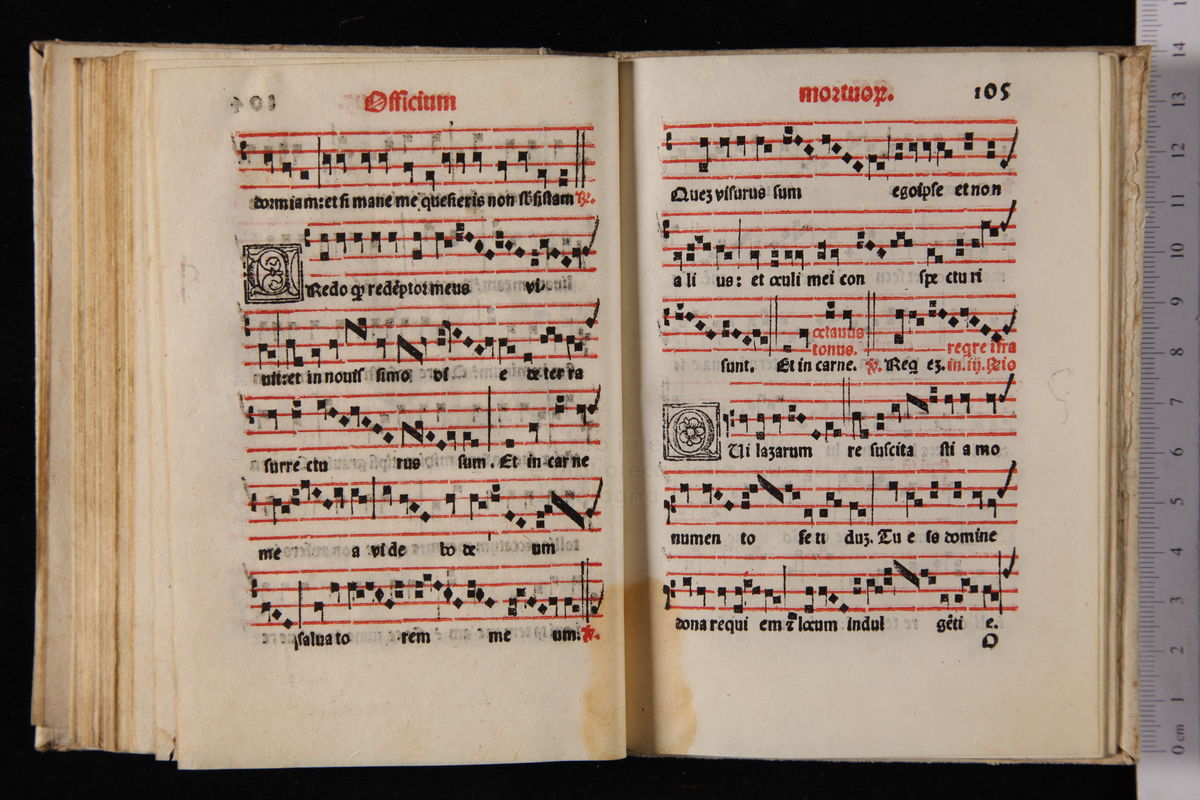 Officium
dormiam: et si mane me quesieris non subsistam ℟.
CRedo ꝙ redẽptor meus vi⸗
uit: et in nouissimo di e de ter ra
surre ctu rus sum. Et in car ne
me a vi de bo de um
salua to rem me um: ℣.
mortuoꝝ. 105
Quez visurus sum ego ipse et non
a li us: et oculi mei con spe cturi
sunt. Et in carne. octauus
tonus. ℣. Req ez. reqre ifra
in. iij. ℟io
QUi lazarum re suscita sti a mo
numen to fe ti duz. Tu e is domine
dona requi em ⁊ locum indul gẽti e.
O